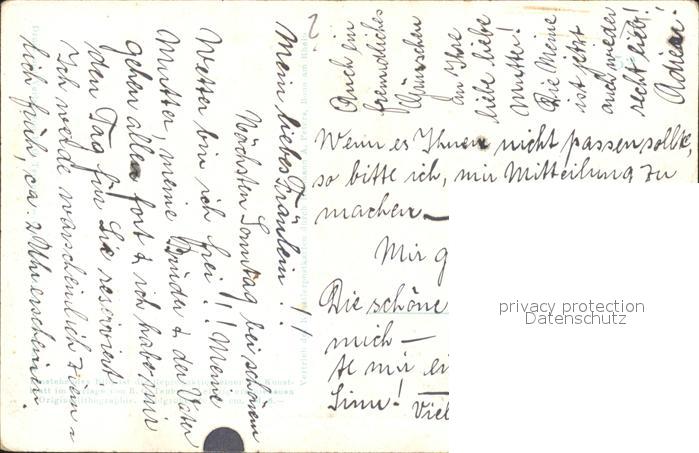 Mein liebes Fräulein!!
Nächsten Sonntag bei schönem
Wetter bin ich frei!! Meine
Mutter, meine Brüder & der Vater
gehen allen fort & ich habe mir
den Tag für Sie reserviert
Ich werde warscheinlich ziem=
lich früh, ca. 2 Uhr erscheinen.
Wenn es Ihnen nicht passen sollte,
so bitte ich, mir Mitteilung zu
machen —
Mir g
Die schöne
mich —
te mir ei
Sinn!
Viel
Auch ein
freundliches
Wünschen
an Ihre
liebe liebe
Mutter!
Die Meine
ist jetzt
auch wieder
recht lieb!
Adieu!
privacy protection
Datenschutz